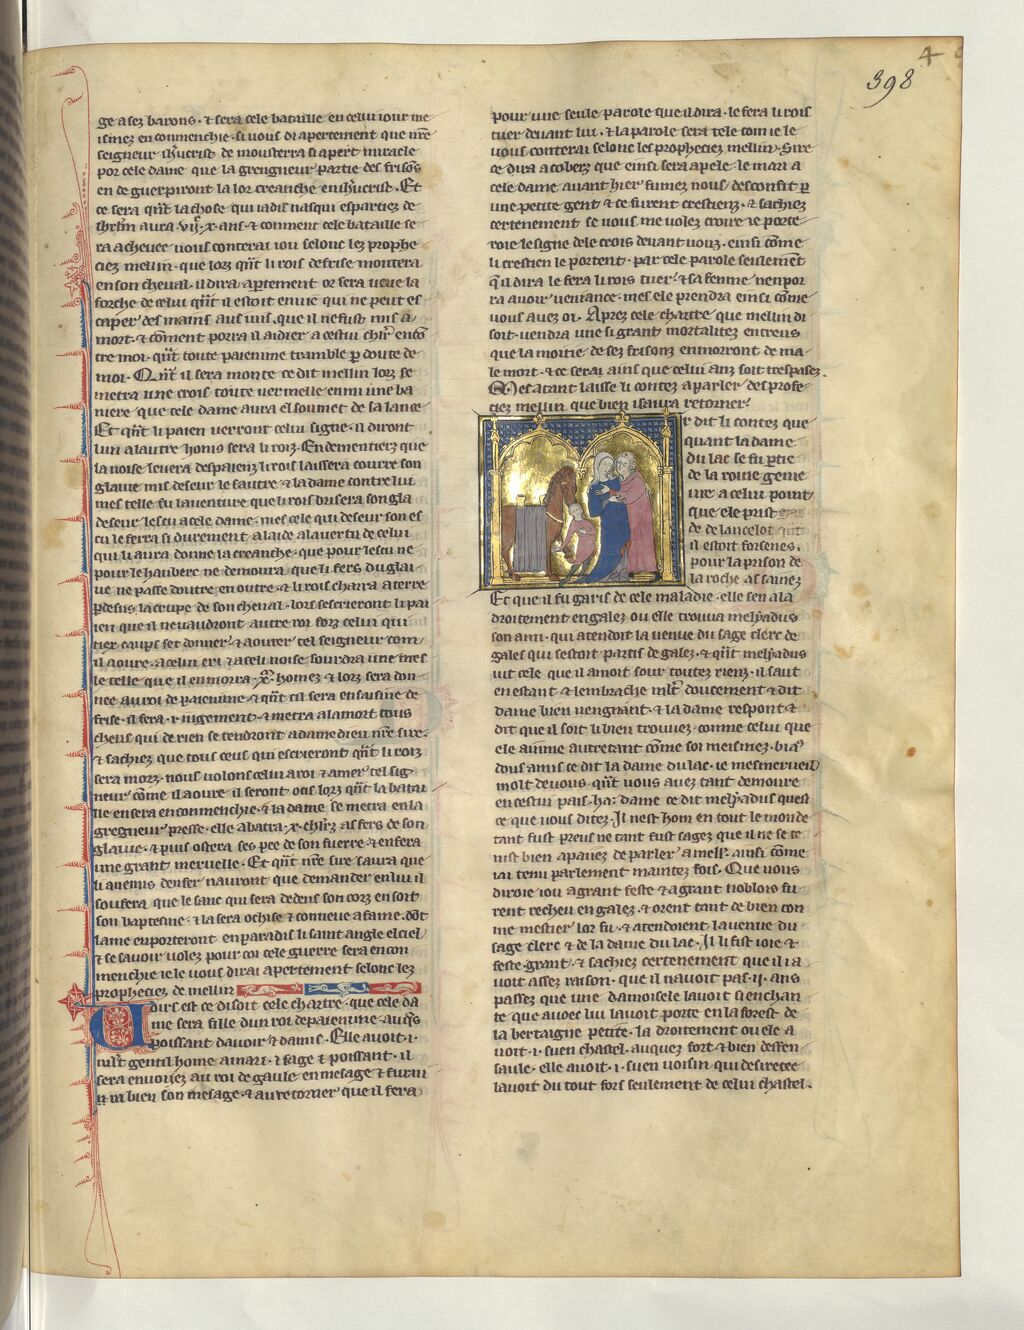 398
4
ge asez barons · ⁊ sera cele bataille en celui iour me
ismez en conmenchie · si vous di apertement que nr̃e
seigneur de mousterra si apert miracle
por cele dame que la grengneur partie des frisõs
en de guerpiront la lor creanche Et
ce sera qñt la chose qui iadis nasqui es parties de
aura ans · ⁊ conment cele bataille se
ra achevee vous conterai iou selonc les prophe
ciez mellin · que lorz qñt li rois de frise montera
en son cheval · il dira apertement or sera veue la
forche de celui qñt il estoit en vie qui ne peut es
caper des mains aus iuis · que il ne fust mis a
mort · ⁊ cõment porra il aidier a cestui chl̃r encõ
tre moi · qñt toute paienime tramble ꝑ doute de
moi · Qñt il sera monte ce dit mellin lorz se
metra une crois toute vermelle enmi une ba
niere que cele dame aura el soumet de sa lance
Et qñt li paien verront celui signe · il diront
lun a lautre honis sera li rois · En dementierz que
la noise levera des paienz li rois laissera courre son
glaive mis deseur le fautre ⁊ la dame contre lui
mes telle fu laventure que li rois brisera son gla
deseur lescu a cele dame · mes cele qui deseur son es
cu le ferra si durement a laide ⁊ la vertu de celui
qui li aura donne la creanche · que pour lescu ne
pour le haubere ne demoura que li fers du glai
ve ne passe doutre en outre · ⁊ li rois charra a terre
ꝑdesus la crupe de son cheval · lors sescrieront li pai
ien que il ne vaudront autre roi forz celui qui
tier caups set donner · ⁊ aourer tel seigneur com
il aoure · a celui cri ⁊ a celi noise sourdra une mes
le telle que il en morra homez ⁊ lorz sera don
nee au roi de paienime · ⁊ qñt cil sera en saisine de
frise · si fera · i · iugement · ⁊ metra a la mort tous
cheus qui de rien se tendront a dame dieu nr̃e sire ·
⁊ sachiez que tous ceus qui escrieront qñt li rois
sera morz · nous volons celui a roi ⁊ amer tel sig
neur cõme il aoure · il seront ocis lorz qñt la batai
lle en sera en conmenchie · ⁊ la dame se metra en la
gregneur presse · elle abatra · x · chl̃rz as fers de son
glaive · ⁊ puis ostera ses pee de son fuerre · ⁊ en fera
une grant mervelle · Et qñt nr̃e sire saura que
li anemis denfer navront que demander en lui il
soufera que le sanc qui sera dedens son corz en soit
son baptesme · ⁊ la sera ochise ⁊ conneue a fame · dõt
lame enporteront en paradis li saint angle el ciel
⁊ se savoir volez pour coi cele guerre sera encon
menchie ie le vous dirai apertement selonc lez
propheciez de mellin
Voirs est ce disoit cele chartre · que cele da
me sera fille dun roi de paienime · auqs
poissant davoir ⁊ damis · Elle avoit · i ·
mlt gentil home a mari · ⁊ sage ⁊ poissant · il
sera envoiiez au roi de gaule en mesage ⁊ furni
ra bien son mesage · ⁊ au retorner que il fera
pour une seule parole que il dira · le fera li rois
tuer devant lui · ⁊ la parole sera tele com ie le
vous conterai selonc les propheciez mellin · Sire
ce dira acoberz que einsi sera apele · le mari a
cele dame avant hier fumez nous desconfit ꝑ
une petite gent ⁊ ce furent crestienz · ⁊ sachiez
certenement se vous me volez croire ie porte
roie le signe dele crois devant vous · einsi cõme
li crestien le portent · par cele parole seulemẽt
qˈil dira le fera li rois tuer · ⁊ sa femme nen por
ra avoir veniance · mes ele prendra einsi cõme
vous avez oi · Aprez cele chartre que mellin di
soit · vendra une si grant mortalitez entreus
que la moitie de sez frisonz en morront de ma
le mort · ⁊ ce sera ains que celui anz soit trespasez ·
Mes atant laisse li contez a parler des profe
ciez mellin que bien i saura retorner ·
r dit li contez que
quant la dame
du lac se fu ꝑtie
de la roine genie
vre a celui point
que ele prist
de de lancelot
il estoit forsenes ·
pour la prison de
la roche as saisnez
Et que il fu garis de cele maladie · elle sen ala
droitement en galez ou elle trouva melyadus
son ami · qui atendoit la venue du sage clerc de
gales qui sestoit partis de galez · ⁊ qñt melyadus
vit cele que il amoit sour toutez rienz · il saut
en estant ⁊ lembrache mlt̃ doucement ⁊ dit
dame bien vengnant · ⁊ la dame respont ⁊
dit que il soit li bien trouvez · conme celui que
ele aimme autretant cõme soi meismez · biaˢ
dous amis ce dit la dame du lac · ie mesmerueil
molt de vous · qñt vous avez tant demoure
en cestui pais · ha · dame ce dit melyadus quest
ce que vous ditez · Il nest hom en tout le monde
tant fust preus ne tant fust sagez que il ne se te
nist bien apaiiez de parler a mell · ainsi cõme
iai tenu parlement maintez fois · Que vous
diroie iou a grant feste ⁊ a grant noblois fu
rent recheu en galez · ⁊ orent tant de bien con
me mestier lor fu · ⁊ atendoient la venue du
sage clerc ⁊ de la dame du lac · Il li fist ioie ⁊
feste grant · ⁊ sachiez certenement que il i a
voit assez raison · que il navoit pas · ij · ans
passez que une damoisele lavoit si enchan
te que avoec lui lavoit porte en la forest de
la bertaigne petite · la droitement ou ele a
voit · i · suen chastel · auquez fort ⁊ bien deffen
saule · elle avoit · i · suen voisin qui desiretee
lavoit du tout fors seulement de celui chastel ·